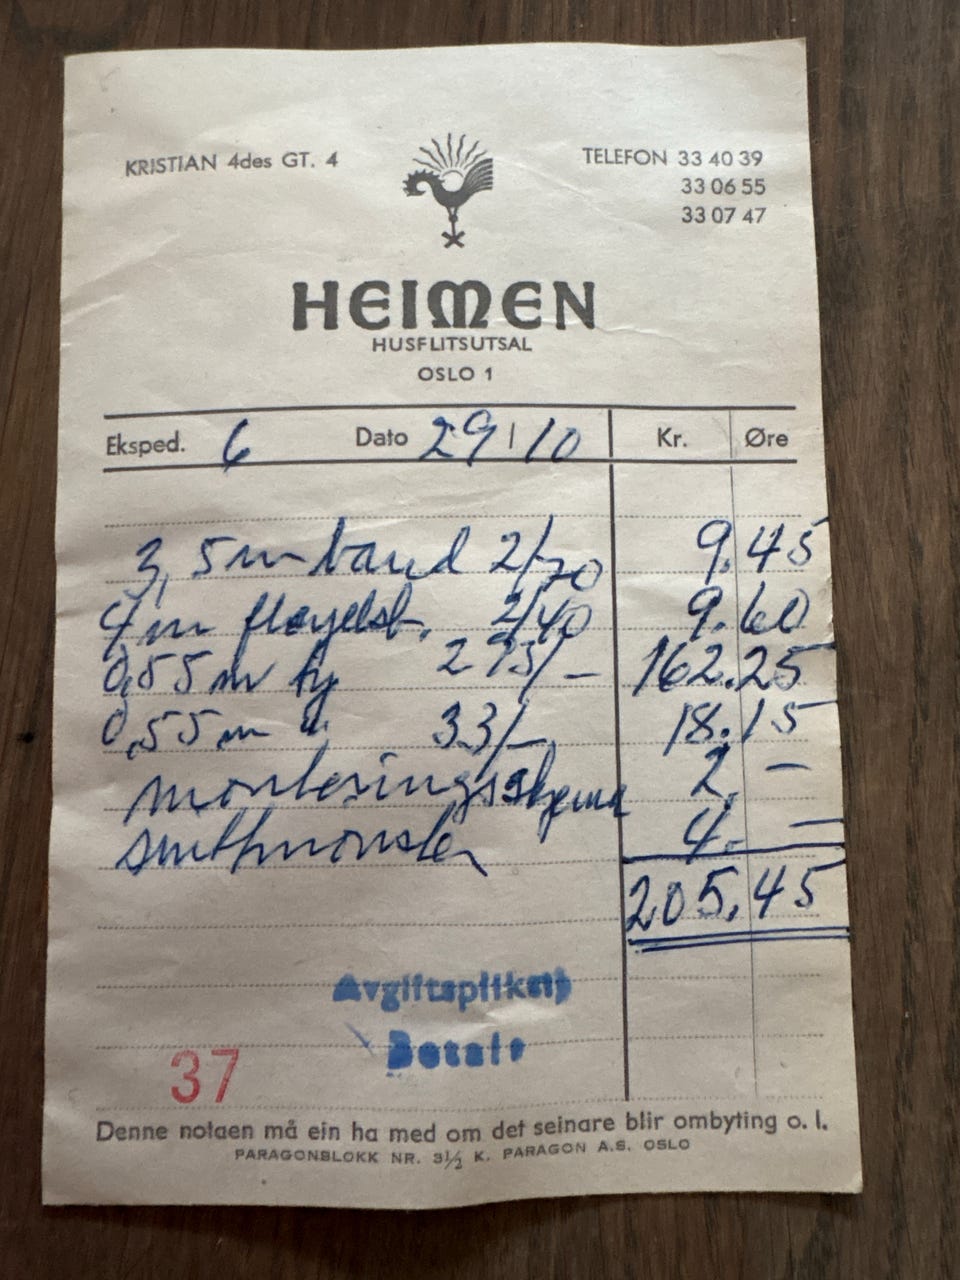 KRISTIAN 4des GT. 4
TELEFON 33 40 39
33 06 55
33 07 47
HEIMEN
HUSFLITSUTSAL
OSLO 1
Eksped. 6 Dato 29/10 Kr. Øre
3,5 m band 2/70 9.45
4 m fløyelsb. 2/40 9.60
0,55 m ty 295/- 162.25
0,55 m " 33/- 18.15
monteringsskjema 2.-
snittmønster 4.-
205.45
Avgiftspliktig
Betalt
37
Denne notaen må ein ha med om det seinare blir ombyting o. l.
PARAGONBLOKK NR. 3½ K. PARAGON A.S. OSLO